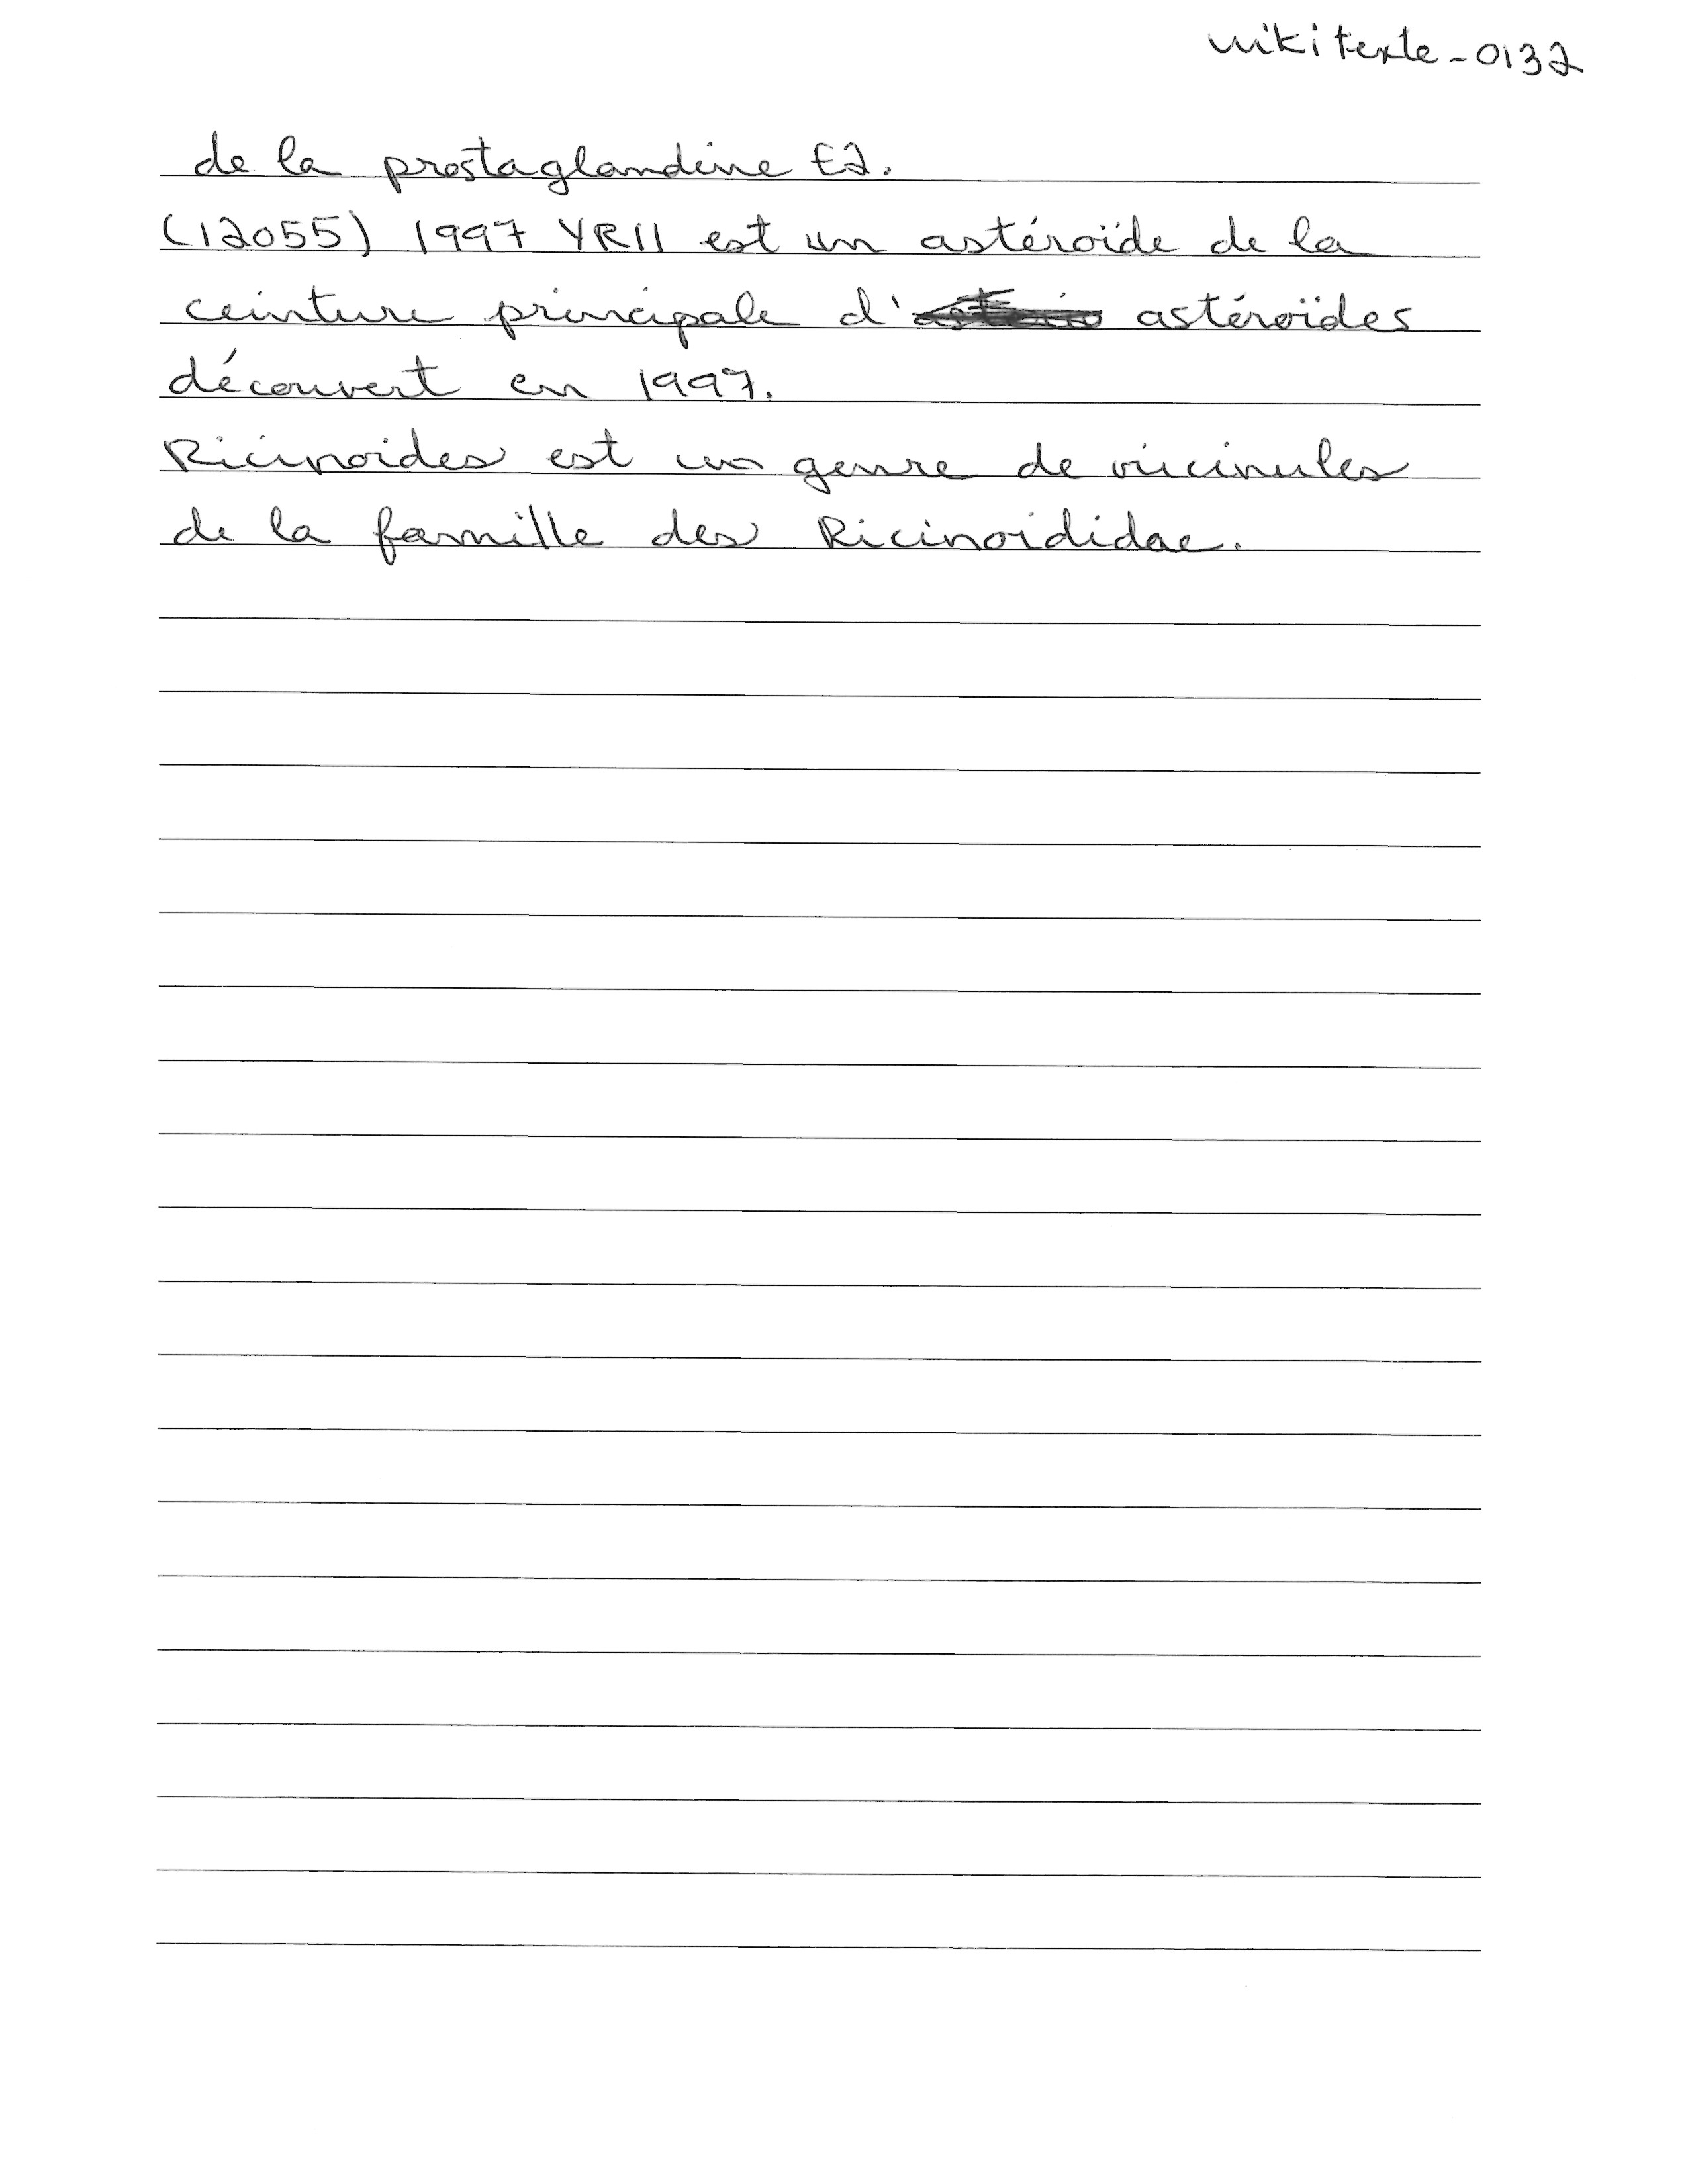 wikitexte-0132
de la prostaglandine E2.
(12055) 1997 YR11 est un astéroïde de la
ceinture principale d' astéroïdes
découvert en 1997.
Ricinoides est un genre de ricinules
de la famille des Ricinoididae.